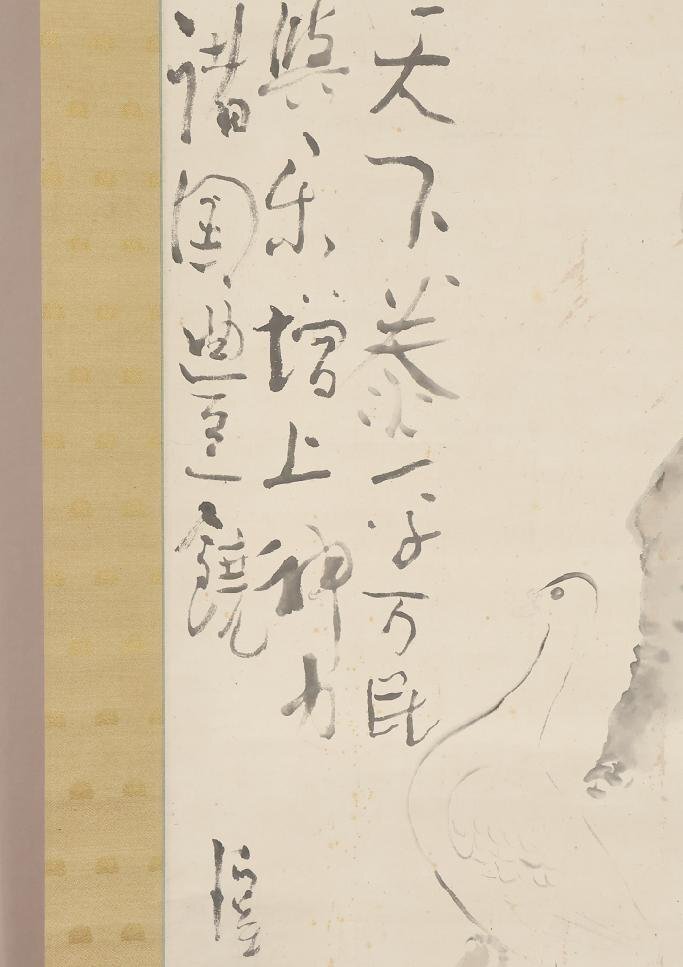 天下泰平万民
與樂增上神力
諸国豊饒